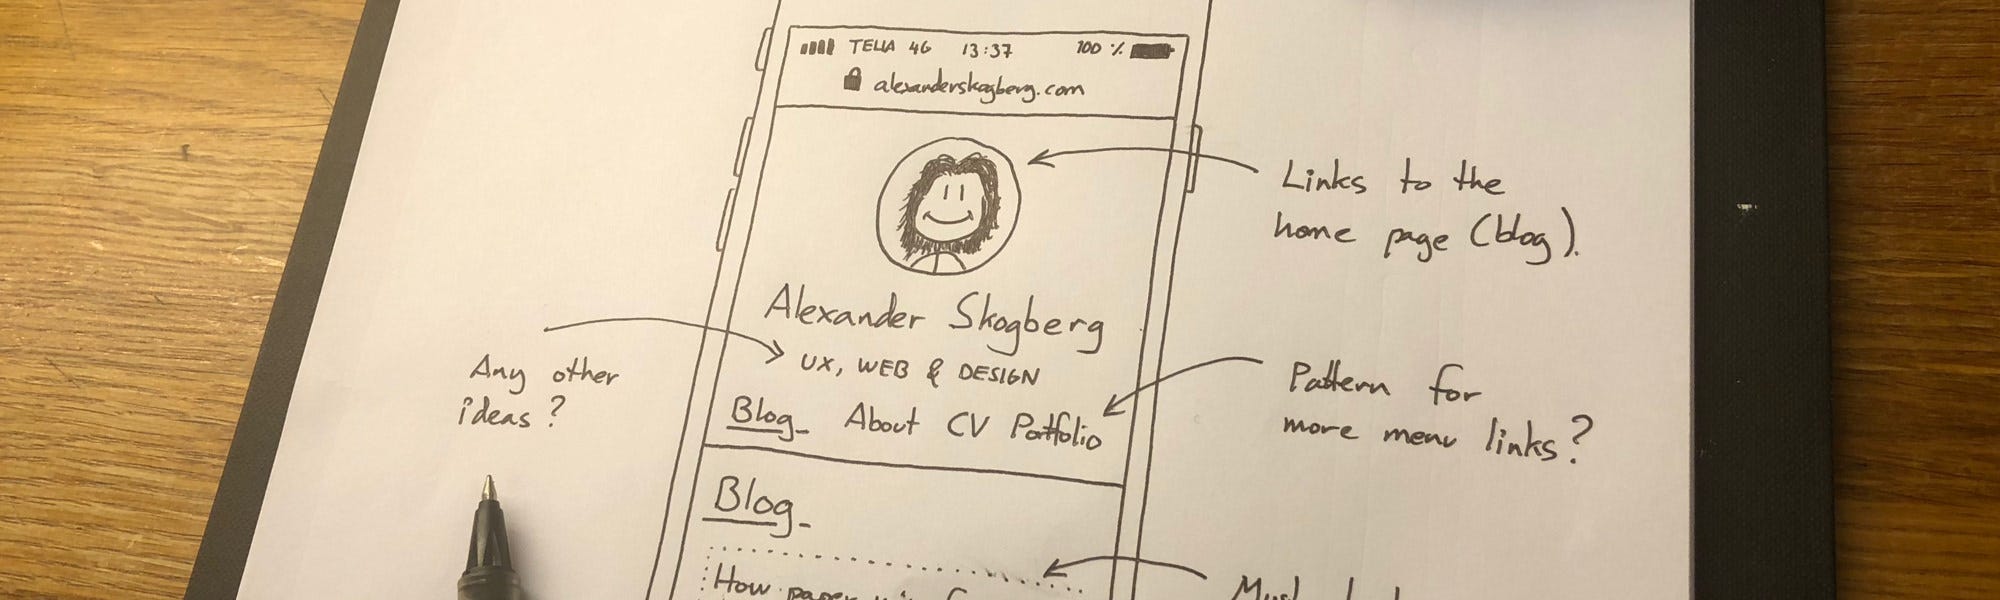 TELIA 4G 13:37 100 %
alexanderskogberg.com
Links to the
home page (blog).
Alexander Skogberg
UX, WEB & DESIGN
Any other
ideas?
Pattern for
more menu links?
Blog About CV Portfolio
Blog
How paper
Must